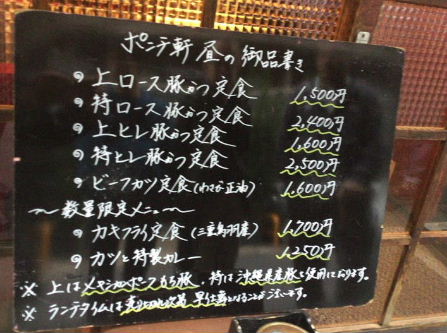 ポンチ軒 昼の御品書き
上ロース豚かつ定食 1,500円
特ロース豚かつ定食 2,400円
上ヒレ豚かつ定食 1,600円
特ヒレ豚かつ定食 2,500円
ビーフカツ定食(わさび正油) 1,600円
〜数量限定メニュー〜
カキフライ定食(三重鳥羽産) 1,700円
カツと特製カレー 1,250円
※ 上はメキシカンポークもち豚、特は沖縄県産豚を使用しております。
※ ランチタイムは売り切れ次第早仕舞となることがございます。